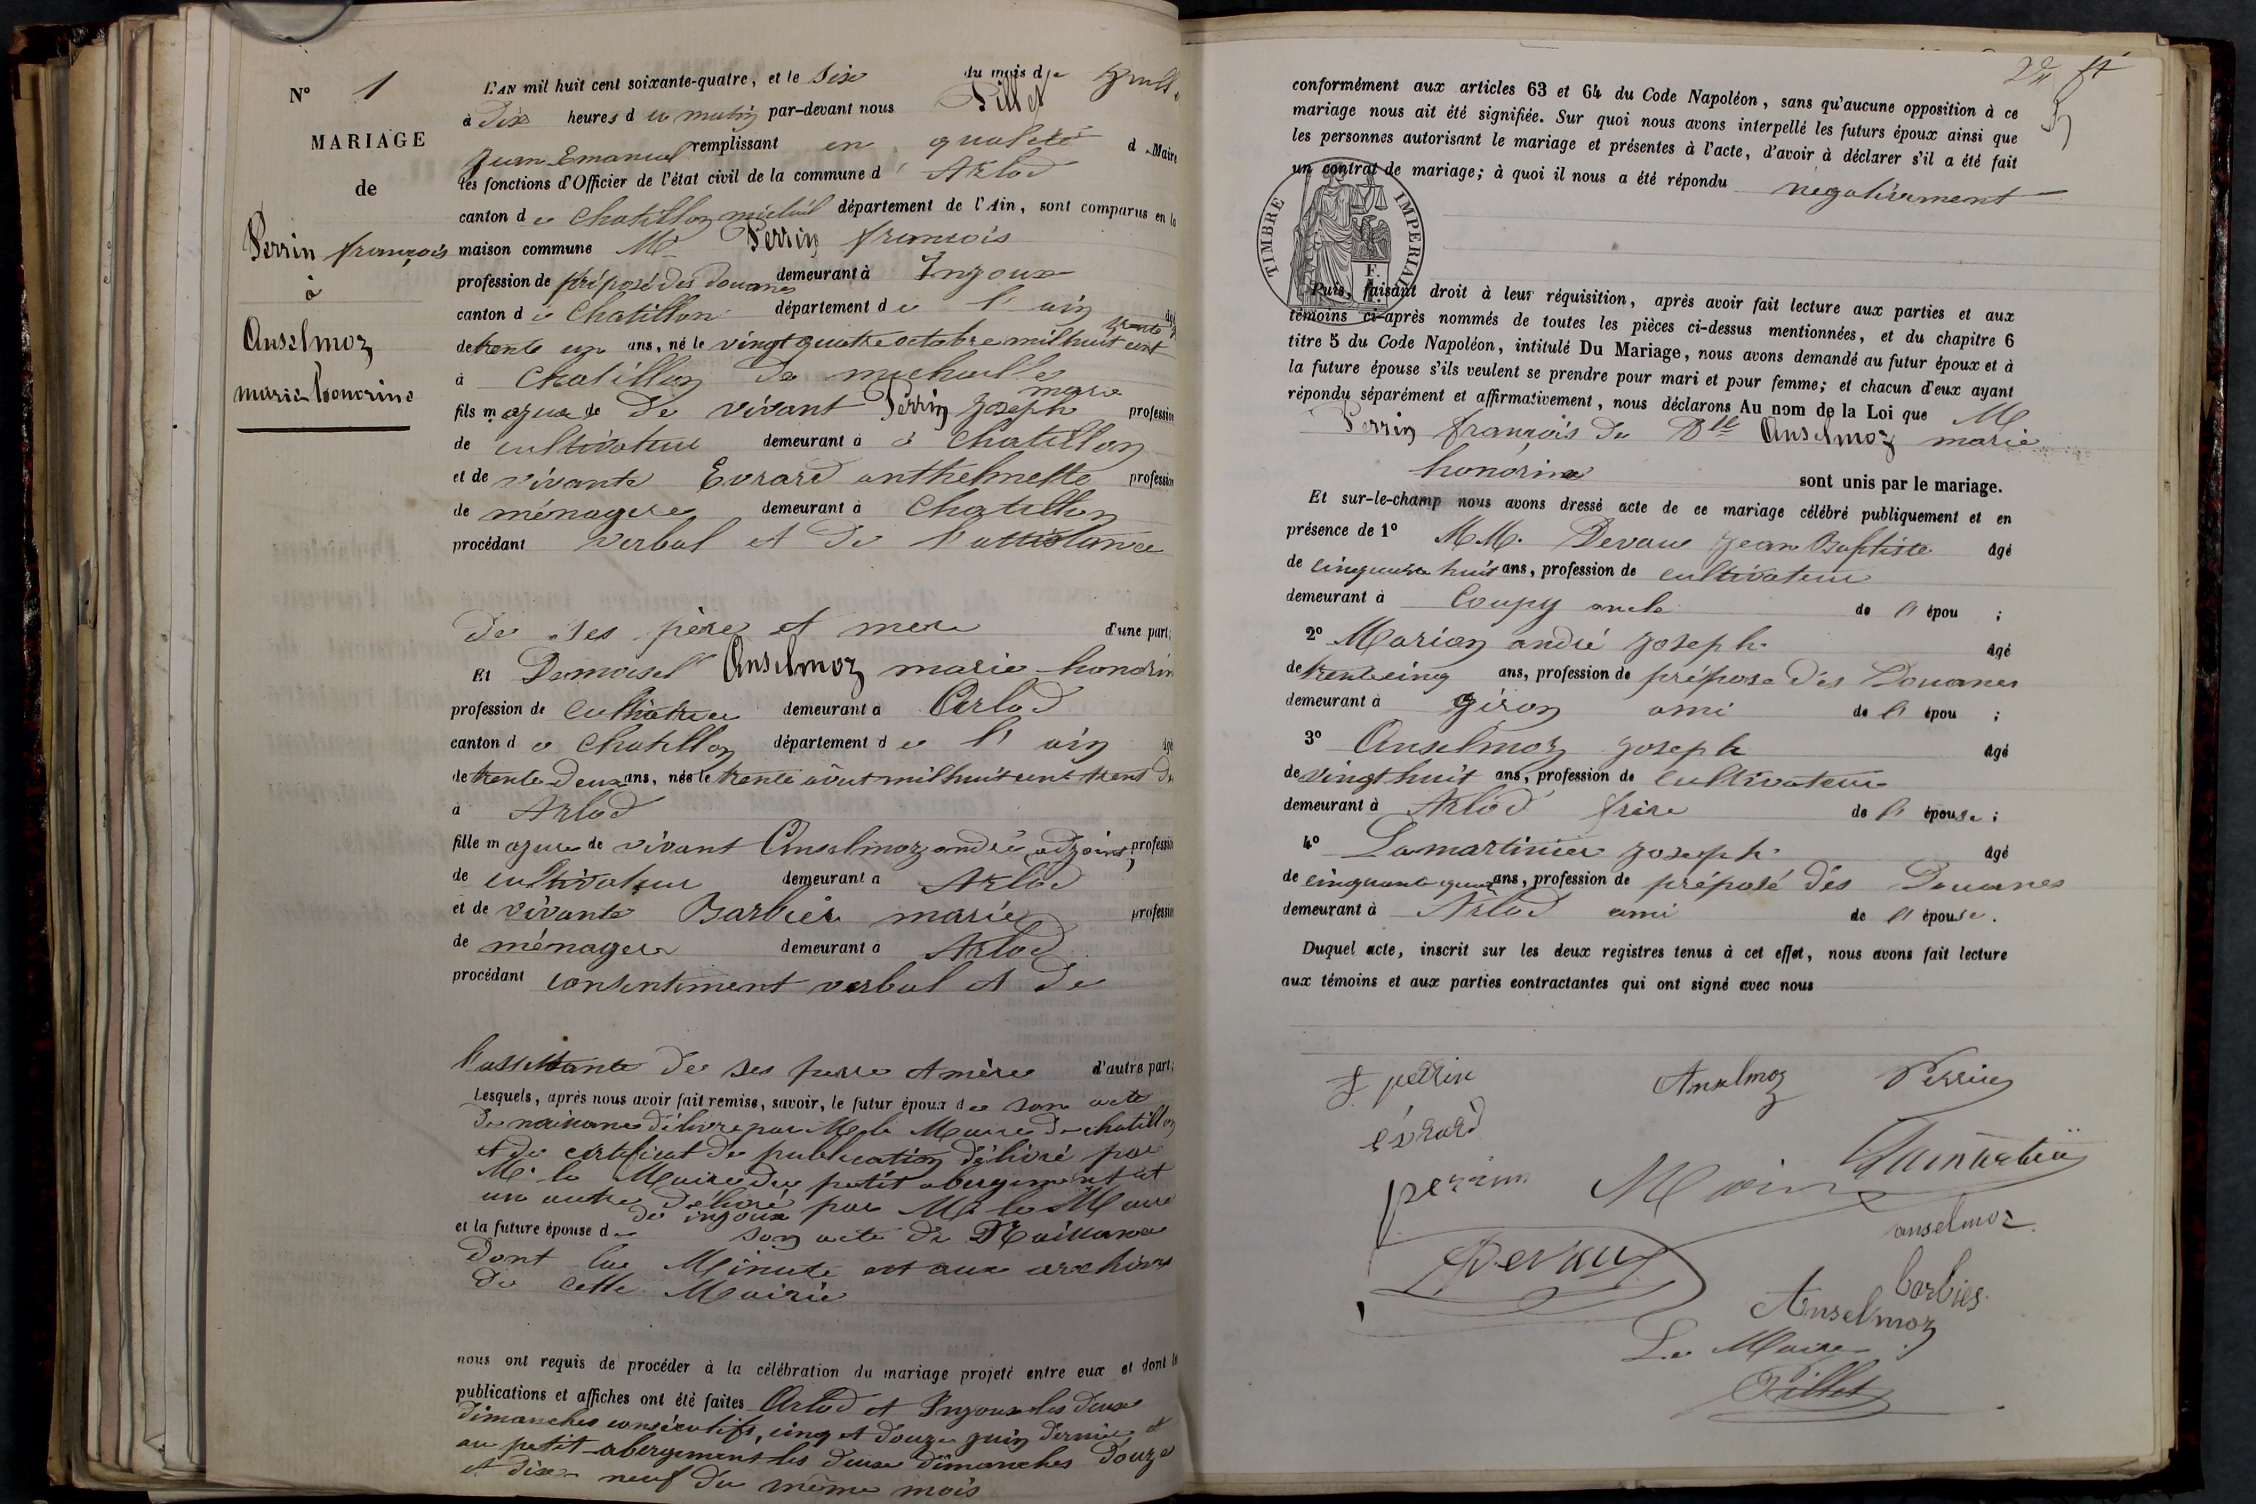 N° 1
MARIAGE
de
Perrin françois
à
Anselmoz
marie honorine
L'AN mil huit cent soixante-quatre, et le Six du mois de Juill
à Dix heures d u matin par-devant nous Pillet
Jean Emanuel remplissant en qualité d Maire
les fonctions d'Officier de l'état civil de la commune d' Arlod
canton d e Chatillon michail département de l'Ain, sont comparus en la
maison commune Mr Perrin francois
profession de préposé des douanes demeurant à Injoux
canton d e Chatillon département d e l'ain âgé
de trente un ans, né le vingt quatre octobre mil huit cent trente
à Chatillon de michaille
fils majeur de De vivant Perrin Joseph marie profession
de cultivateur demeurant à à Chatillon
et de vivante Evrard anthelmette profession
de ménagere demeurant à Chatillon
procédant verbal et De l'assistance
De ses père et mere d'une part;
Et Demoisel Anselmoz marie honorin
profession de Cultivatrice demeurant à Arlod
canton d e Chatillon département d e l'ain âgé
de trente deux ans, née le trente août mil huit cent trent
à Arlod
fille majeure de vivant Anselmoz andré adjoint, profession
de cultivateur demeurant à Arlod
et de vivante Barbier marie profession
de ménagere demeurant à Arlod
procédant consentiment verbal et De
l'assistante De ses perre et mère d'autre part;
Lesquels, après nous avoir fait remise, savoir, le futur époux d e son acte
De naissance délivré par Mr le Maire De chatillon
et de certificat De publication délivré par
Mr le Maire du petit abergement et
un autre délivré par Mr le Maire
De injoux
et la future épouse d e son acte de Naissance
Dont la Minute est aux archives
De cette Mairie
nous ont requis de procéder à la célébration du mariage projeté entre eux et dont l
publications et affiches ont été faites Arlod et Injoux les deux
dimanches consécutifs, cinq et douze juin dernier et
au petit abergement les deux dimanches Douze
et dix neuf du même mois
conformément aux articles 63 et 64 du Code Napoléon, sans qu'aucune opposition à ce
mariage nous ait été signifiée. Sur quoi nous avons interpellé les futurs époux ainsi que
les personnes autorisant le mariage et présentes à l'acte, d'avoir à déclarer s'il a été fait
un contrat de mariage; à quoi il nous a été répondu négativement
TIMBRE IMPERIAL
Puis, faisant droit à leur réquisition, après avoir fait lecture aux parties et aux
témoins ci-après nommés de toutes les pièces ci-dessus mentionnées, et du chapitre 6
titre 5 du Code Napoléon, intitulé Du Mariage, nous avons demandé au futur époux et à
la future épouse s'ils veulent se prendre pour mari et pour femme; et chacun d'eux ayant
répondu séparément et affirmativement, nous déclarons Au nom de la Loi que M
Perrin françois De Dlle Anselmoz marie
honorine sont unis par le mariage.
Et sur-le-champ nous avons dressé acte de ce mariage célébré publiquement et en
présence de 1° MM. Devaux Jean Baptiste âgé
de cinquante huit ans, profession de cultivateur
demeurant à Coupy oncle de l' épou ;
2° Marion andré joseph âgé
de trente cinq ans, profession de préposé Des Douanes
demeurant à giron ami de l' épou ;
3° Anselmoz joseph âgé
de vingt huit ans, profession de cultivateur
demeurant à Arlod frère de l' épouse ;
4° Lamartinier joseph âgé
de cinquante quat ans, profession de préposé Des Douanes
demeurant à Arlod ami de l' épouse.
Duquel acte, inscrit sur les deux registres tenus à cet effet, nous avons fait lecture
aux témoins et aux parties contractantes qui ont signé avec nous
f perrin Anselmoz Perrin
évrard
perrin
anselmoz
Devaux
barbier
Anselmoz
Le Maire
Pillet